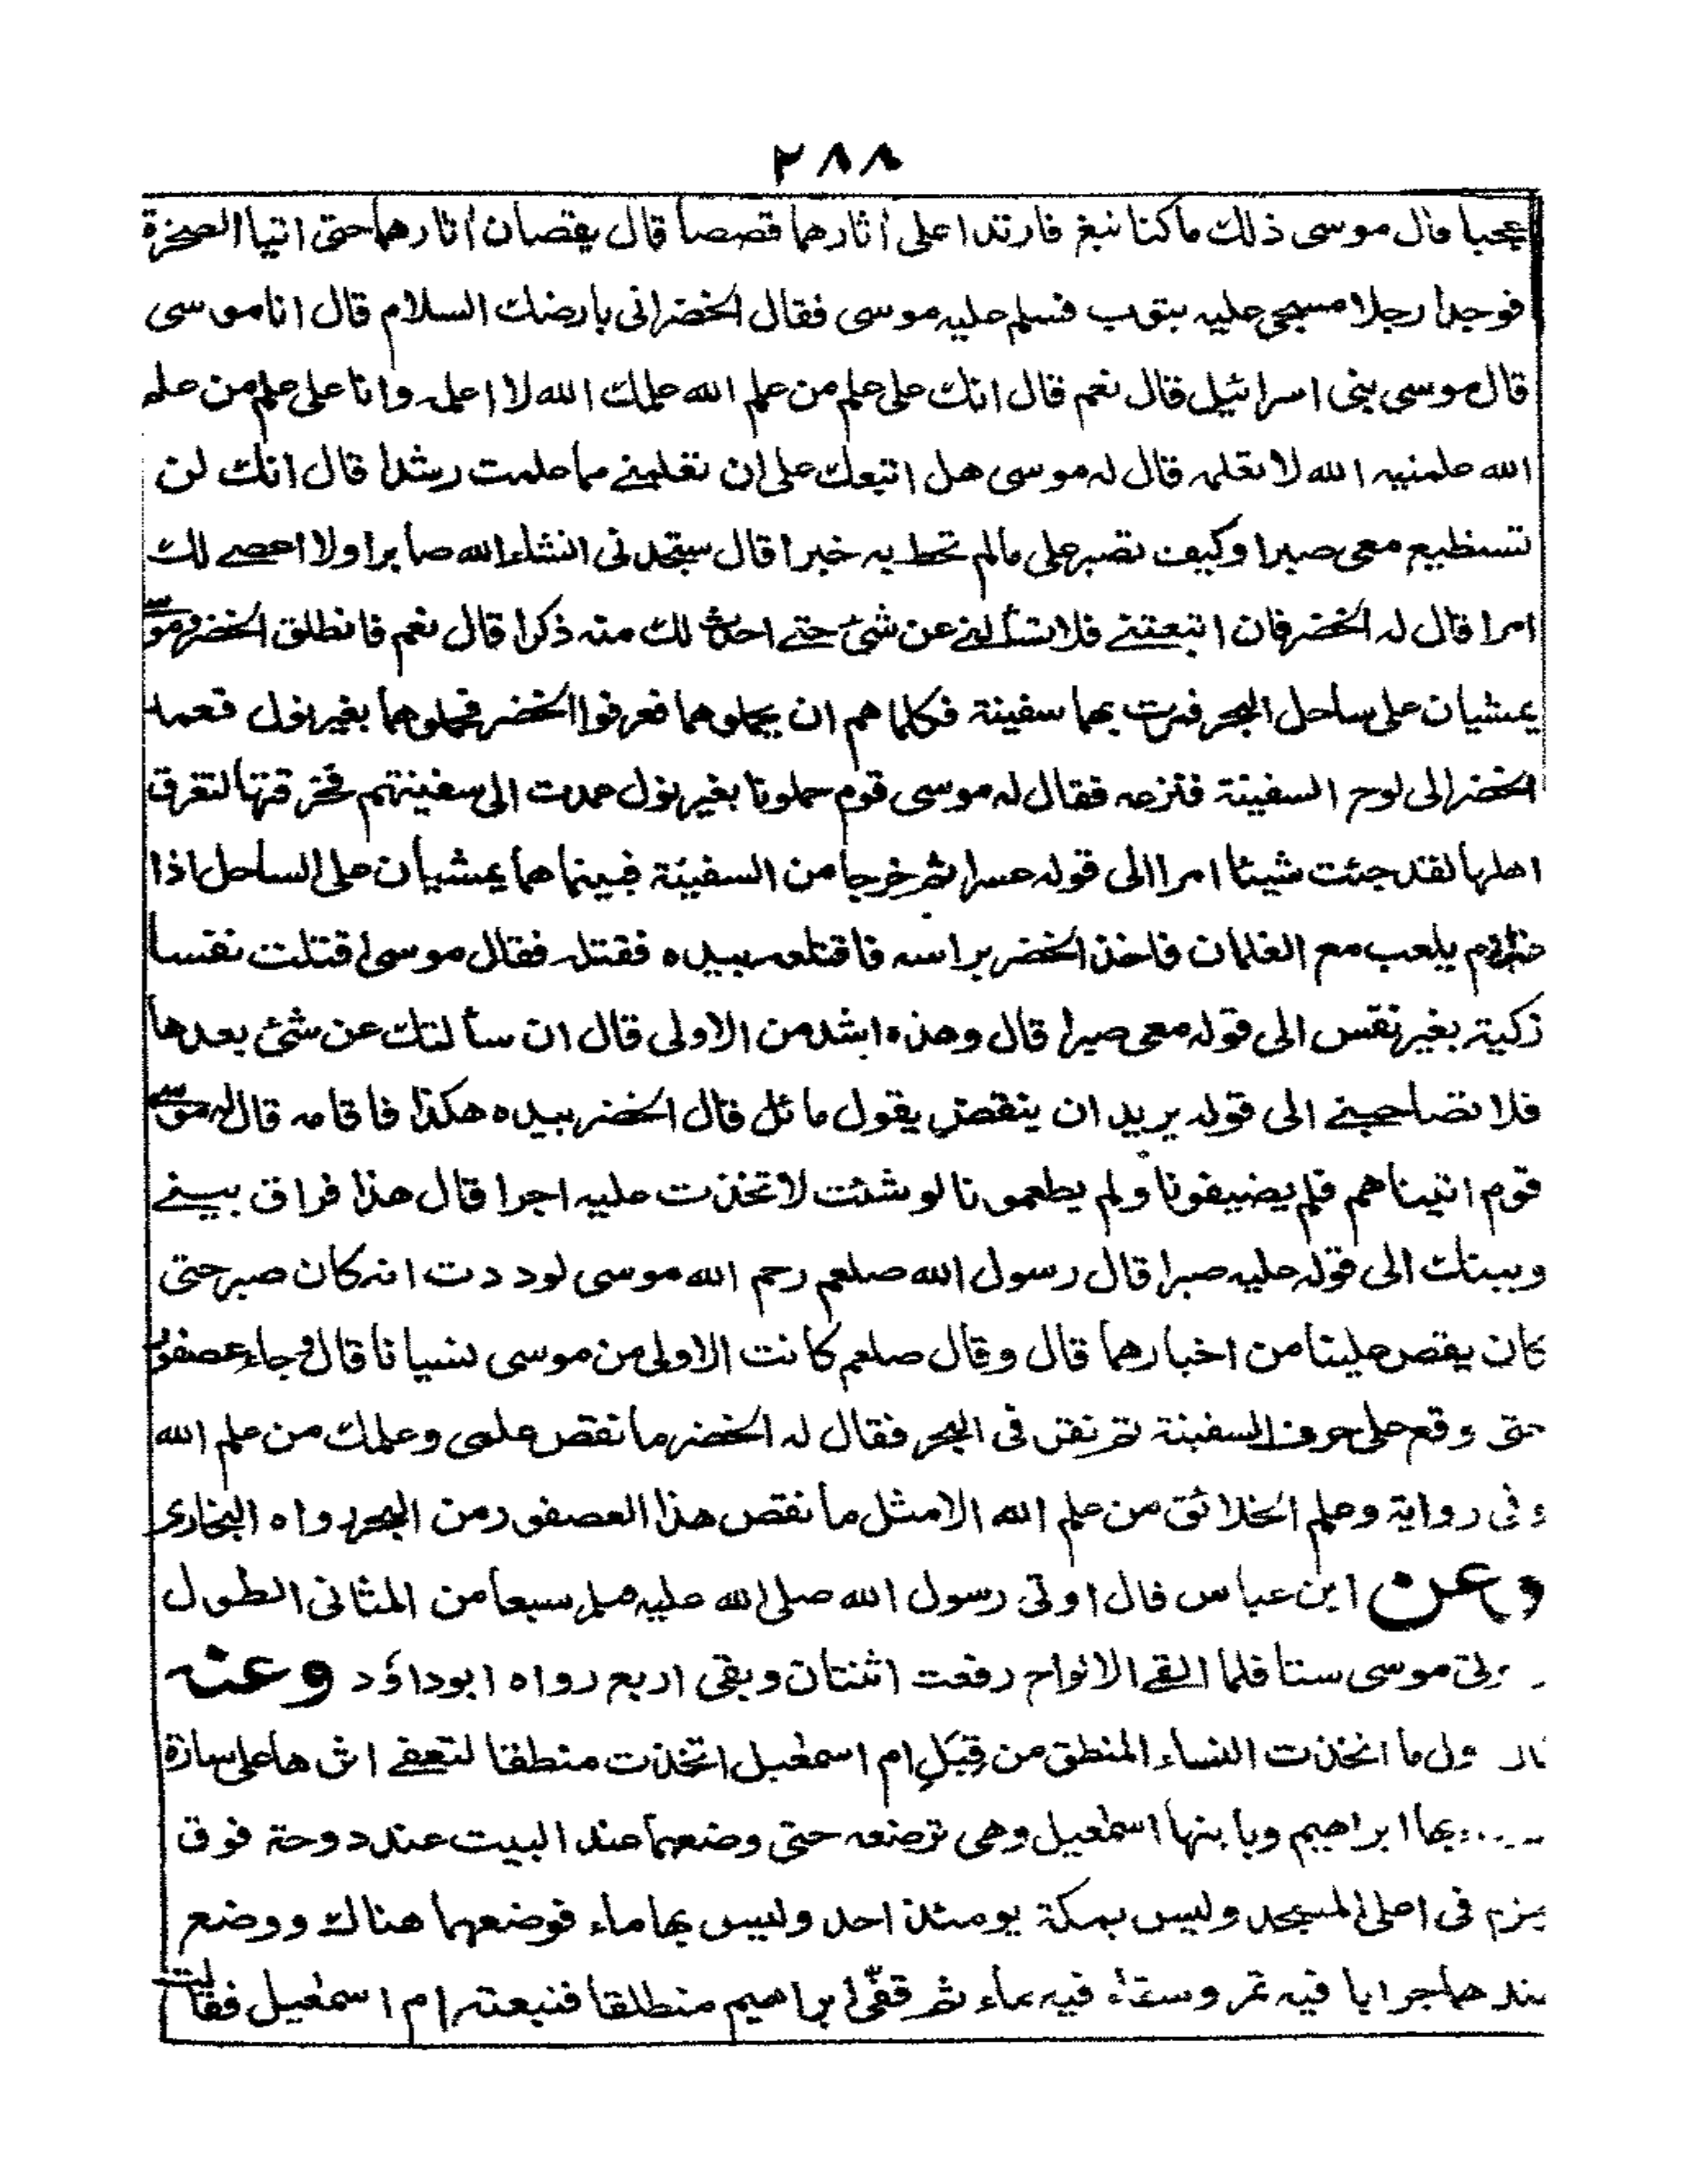 ٢٨٨
عجبا قال موسى ذلك ماكنا نبغ فارتدا على اثارهما قصصا قال يقصان اثارهما حتى اتيا الصخرة
فوجدا رجلا مسجى عليه بثوب فسلم عليه موسى فقال الخضر انى بارضك السلام قال انا موسى
قال موسى بنى اسرائيل قال نعم قال انك على علم من علم الله علمك الله لا اعلمه وانا على علم من علم
الله علمنيه الله لا تعلمه قال له موسى هل اتبعك على ان تعلمنے مما علمت رشدا قال انك لن
تستطيع معى صبرا وكيف تصبر على مالم تحط به خبرا قال ستجدنى انشاء الله صابرا ولا اعصے لك
امرا قال له الخضر فان اتبعتنے فلا تسألنے عن شئ حتے احدث لك منه ذكرا قال نعم فانطلق الخضر وموسى
يمشيان على ساحل البحر فمرت بهما سفينة فكلماهم ان يحملوهما فعرفوا الخضر فحملوهما بغير نول فعمد
الخضر الى لوح السفينة فنزعه فقال له موسى قوم حملونا بغير نول عمدت الى سفينتهم فخرقتها لتغرق
اهلها لقد جئت شيئا امرا الى قوله عسرا ثم خرجا من السفينة فبينما هما يمشيان على الساحل اذا
يلعب مع الغلمان فاخذ الخضر براسه فاقتلعه بيده فقتله فقال موسى اقتلت نفسا
زكية بغير نفس الى قوله معى صبرا قال وهذه اشد من الاولى قال ان سألتك عن شئ بعدها
فلا تصاحبنے الى قوله يريد ان ينقض يقول مائل قال الخضر بيده هكذا فاقامه قال له موسى
قوم اتيناهم فلم يضيفونا ولم يطعمونا لو شئت لاتخذت عليه اجرا قال هذا فراق بينے
وبينك الى قوله عليه صبرا قال رسول الله صلعم رحم الله موسى لوددت انه كان صبر حتى
كان يقص علينا من اخبارهما قال وقال صلعم كانت الاولى من موسى نسيانا قال وجاء عصفور
حتى وقع على حرف السفينة ثم نقر فى البحر فقال له الخضر ما نقص علمى وعلمك من علم الله
وفى رواية وعلم الخلائق من علم الله الا مثل ما نقص هذا العصفور من البحر رواه البخارى
وعن ابن عباس قال اوتى رسول الله صلى الله عليه وسلم سبعا من المثانى الطول
موسى ستا فلما القے الالواح رفعت اثنتان وبقى اربع رواه ابوداؤد وعنه
ما اتخذت النساء المنطق من قِبَلِ ام اسمعيل اتخذت منطقا لتعفے اثرها على سارة
بها ابراهيم وبابنها اسمعيل وهى ترضعه حتى وضعهما عند البيت عند دوحة فوق
فى اعلى المسجد وليس بمكة يومئذ احد وليس بها ماء فوضعهما هناك ووضع
عندهما جرابا فيه تمر وسقاء فيه ماء ثم قفّى ابراهيم منطلقا فتبعته ام اسمعيل فقالت